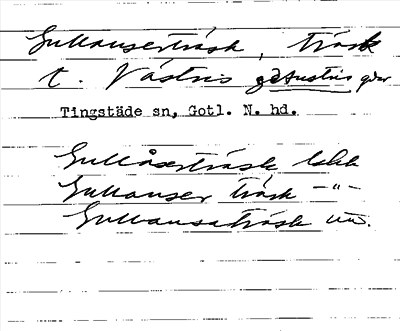 Gullauserträsk, träsk
t. Västris
Tingstäde sn, Gotl. N. hd.
Gullåserträsk
Gullauser träsk -"-
Gullausaträsk